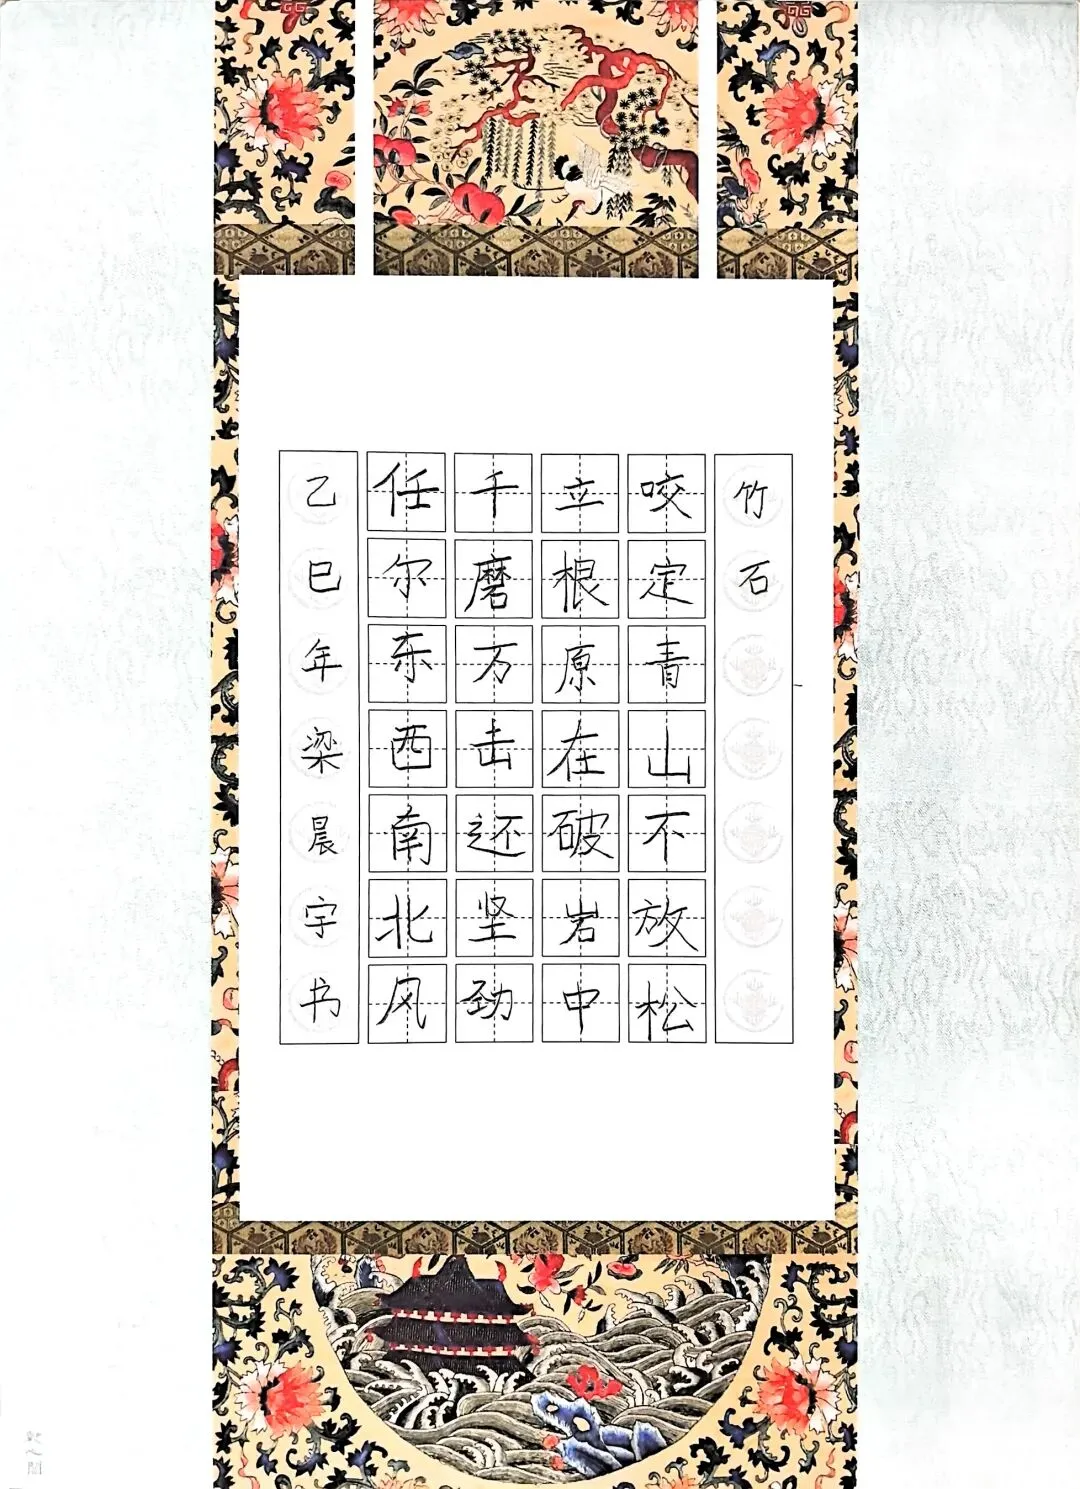 竹石
咬定青山不放松
立根原在破岩中
千磨万击还坚劲
任尔东西南北风
乙巳年梁晨宇书